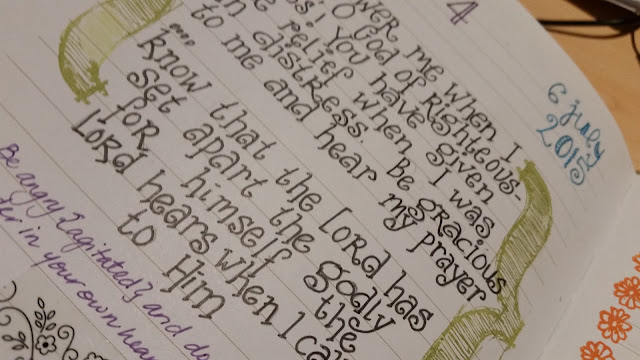 4
me when I
O God of righteous-
! You have given
relief when I was
in distress. Be gracious
to me and hear my prayer
and
know that the Lord has
set apart the godly
for himself the
Lord hears when I
to Him
6 July
2015
Be angry [agitated] and do
in your own